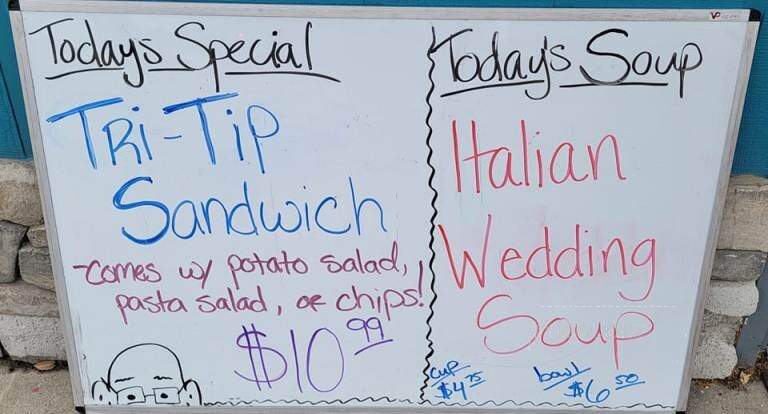 Todays Special
Tri-Tip
Sandwich
-comes w/ potato salad,
pasta salad, or chips!
$10.99
Today's Soup
Italian
Wedding
Soup
cup
$4.75
bowl
$6.50